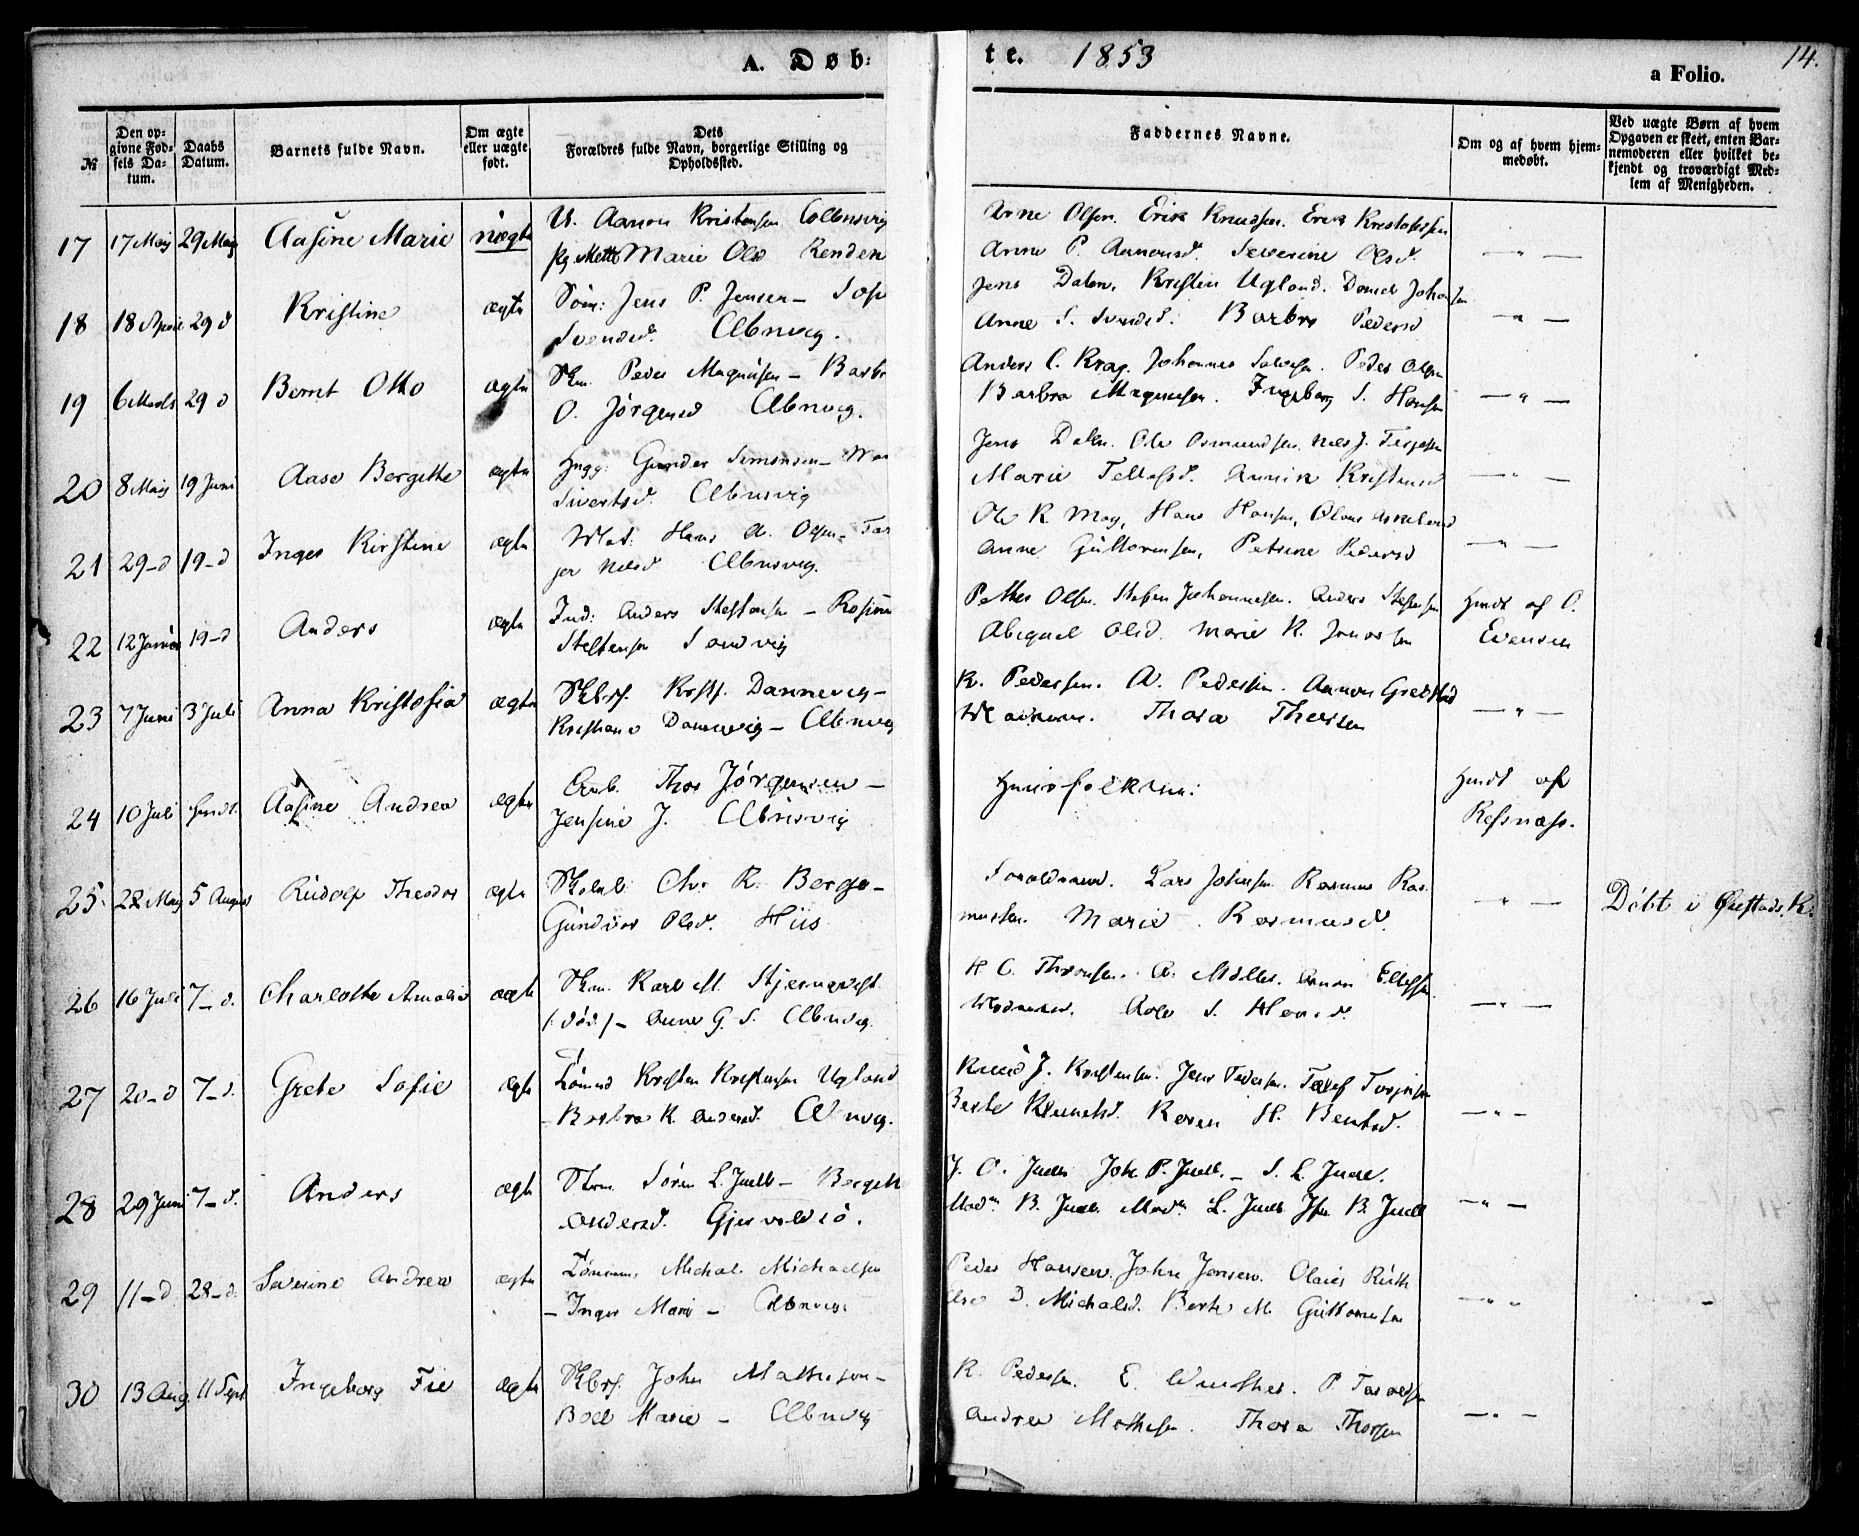 A. Døb:
te. 1853
a Folio.
14.
№
Den op-
givne Fød-
sels Da-
tum.
Daabs
Datum.
Barnets fulde Navn.
Om ægte
eller uægte
født.
Dets
Forældres fulde Navn, borgerlige Stilling og
Opholdssted.
Faddernes Navne.
Om og af hvem hjem-
medøbt.
Ved uægte Børn af hvem
Opgaven er skeet, enten Bar-
nemoderen eller hvilket be-
kjendt og troværdigt Med-
lem af Menigheden.
17 17 Maj 29 Maj Aasine Marie uægte U. Aanon Kristensen
Pg. Mette Marie Olsd Renden
Arne Olsen. Erik Knudsen. Erik Kristofersen
Anne P. Aanonsd. Severine Olsd. — " —
18 18 April 29 d Kristine ægte Søm: Jens P. Jensen —
Svendsd.
Jens Dalen. Kristen Ugland. Daniel Johansen
Anne S. Svendsd. Barbro Pedersd — " —
19 6 Marts 29 d Bernt Otto ægte Skm. Peder Magnusen — Barbr
O. Jørgensd
Anders C. Krag. Johannes Peder Olsen
Barbra Magnusen. Ingeborg S. Hansen — " —
20 8 Maj 19 Juni Aase Bergitte ægte Hugg: Gunder Simonsen —
Sivertsd.
Jens Dalen. Ole Osmundsen. Nels J. Terjesen
Marie Tellefsd. Kristensd — " —
21 29 - d 19 - d Inger Kirstine ægte Mat: Hans A. Olsen — Tar
jer Nelsd
Ole K. May, Hans Hansen,
Anne Guttormsen, Petrine Pedersd — " —
22 12 Januar 19 - d Anders ægte Ind: Anders Steffensen — Rosine
Steffensen Sandvig
Petter Olsen. Stefen Johannesen. Anders Steffensen
Abigael Olsd. Marie K. Jonassen
Hmdt af O.
Evensen
23 7 Juni 3 Juli Anna Kristofia ægte Skbsf. Krstf. Dannevig —
Kristiane Dannevig —
K. Pedersen. A. Pedersen. Aanon Gredstad
Thora Thorsen — " —
24 10 Juli Hmdt. Aasine Andrea ægte Arb. Thor Jørgensen —
Jensine J.
Huusfolkene:
Hmdt af
Refsnæss.
25. 22 Maj 5 August Rudolf Theodor ægte Skolel. Chr. R. Berge —
Gundvor Olsd. Hiis
Lars Johnsen Rasmus Ras
mussen. Marie Rasmusd. — " —
Döbt i Øiestads K.
26 16 Juli 7 - d. Charlotte Amalie ægte Skm. Karl M. Stjernqvist
/: død :/ — Anne G. S.
H C. Thronsen. A. Møller. Aanon Ellefsen.
— " —
27 20 - d 7 - d. Grete Sofie ægte Tømmd Kristen Kristensen Ugland
— Barbra K. Andersd.
Knud J. Kristensen. Jens Pedersen. Tellef Torjusen
Berte Knudsd. Karen H. Bentsd. — " —
28 29 Juni 7 - d. Anders ægte Skm. Søren L. Juell — Bergitte
Andersd. Gjervoldsø.
J. C. Juell Joh. P. Juell. — S. L. Juell.
Madm B. Juell. Madm L. Juell Jfr B. Juell — " —
29 11 - d. 28 - d. Severine Andrea ægte Tømmm. Michal Michaelsen
— Inger Marie —
Peder Hansen. John Jensen. Olaus Rüth
Else D. Michalsd. Berte M. Guttormsen — " —
30 13 Aug. 11 Sept. Ingeborg Fie ægte Skbsf. John Mathisen —
Boel Marie —
K. Pedersen. E. Winther. P Taraldsen
Andrea Mathisen. Thora Thorsen — " —